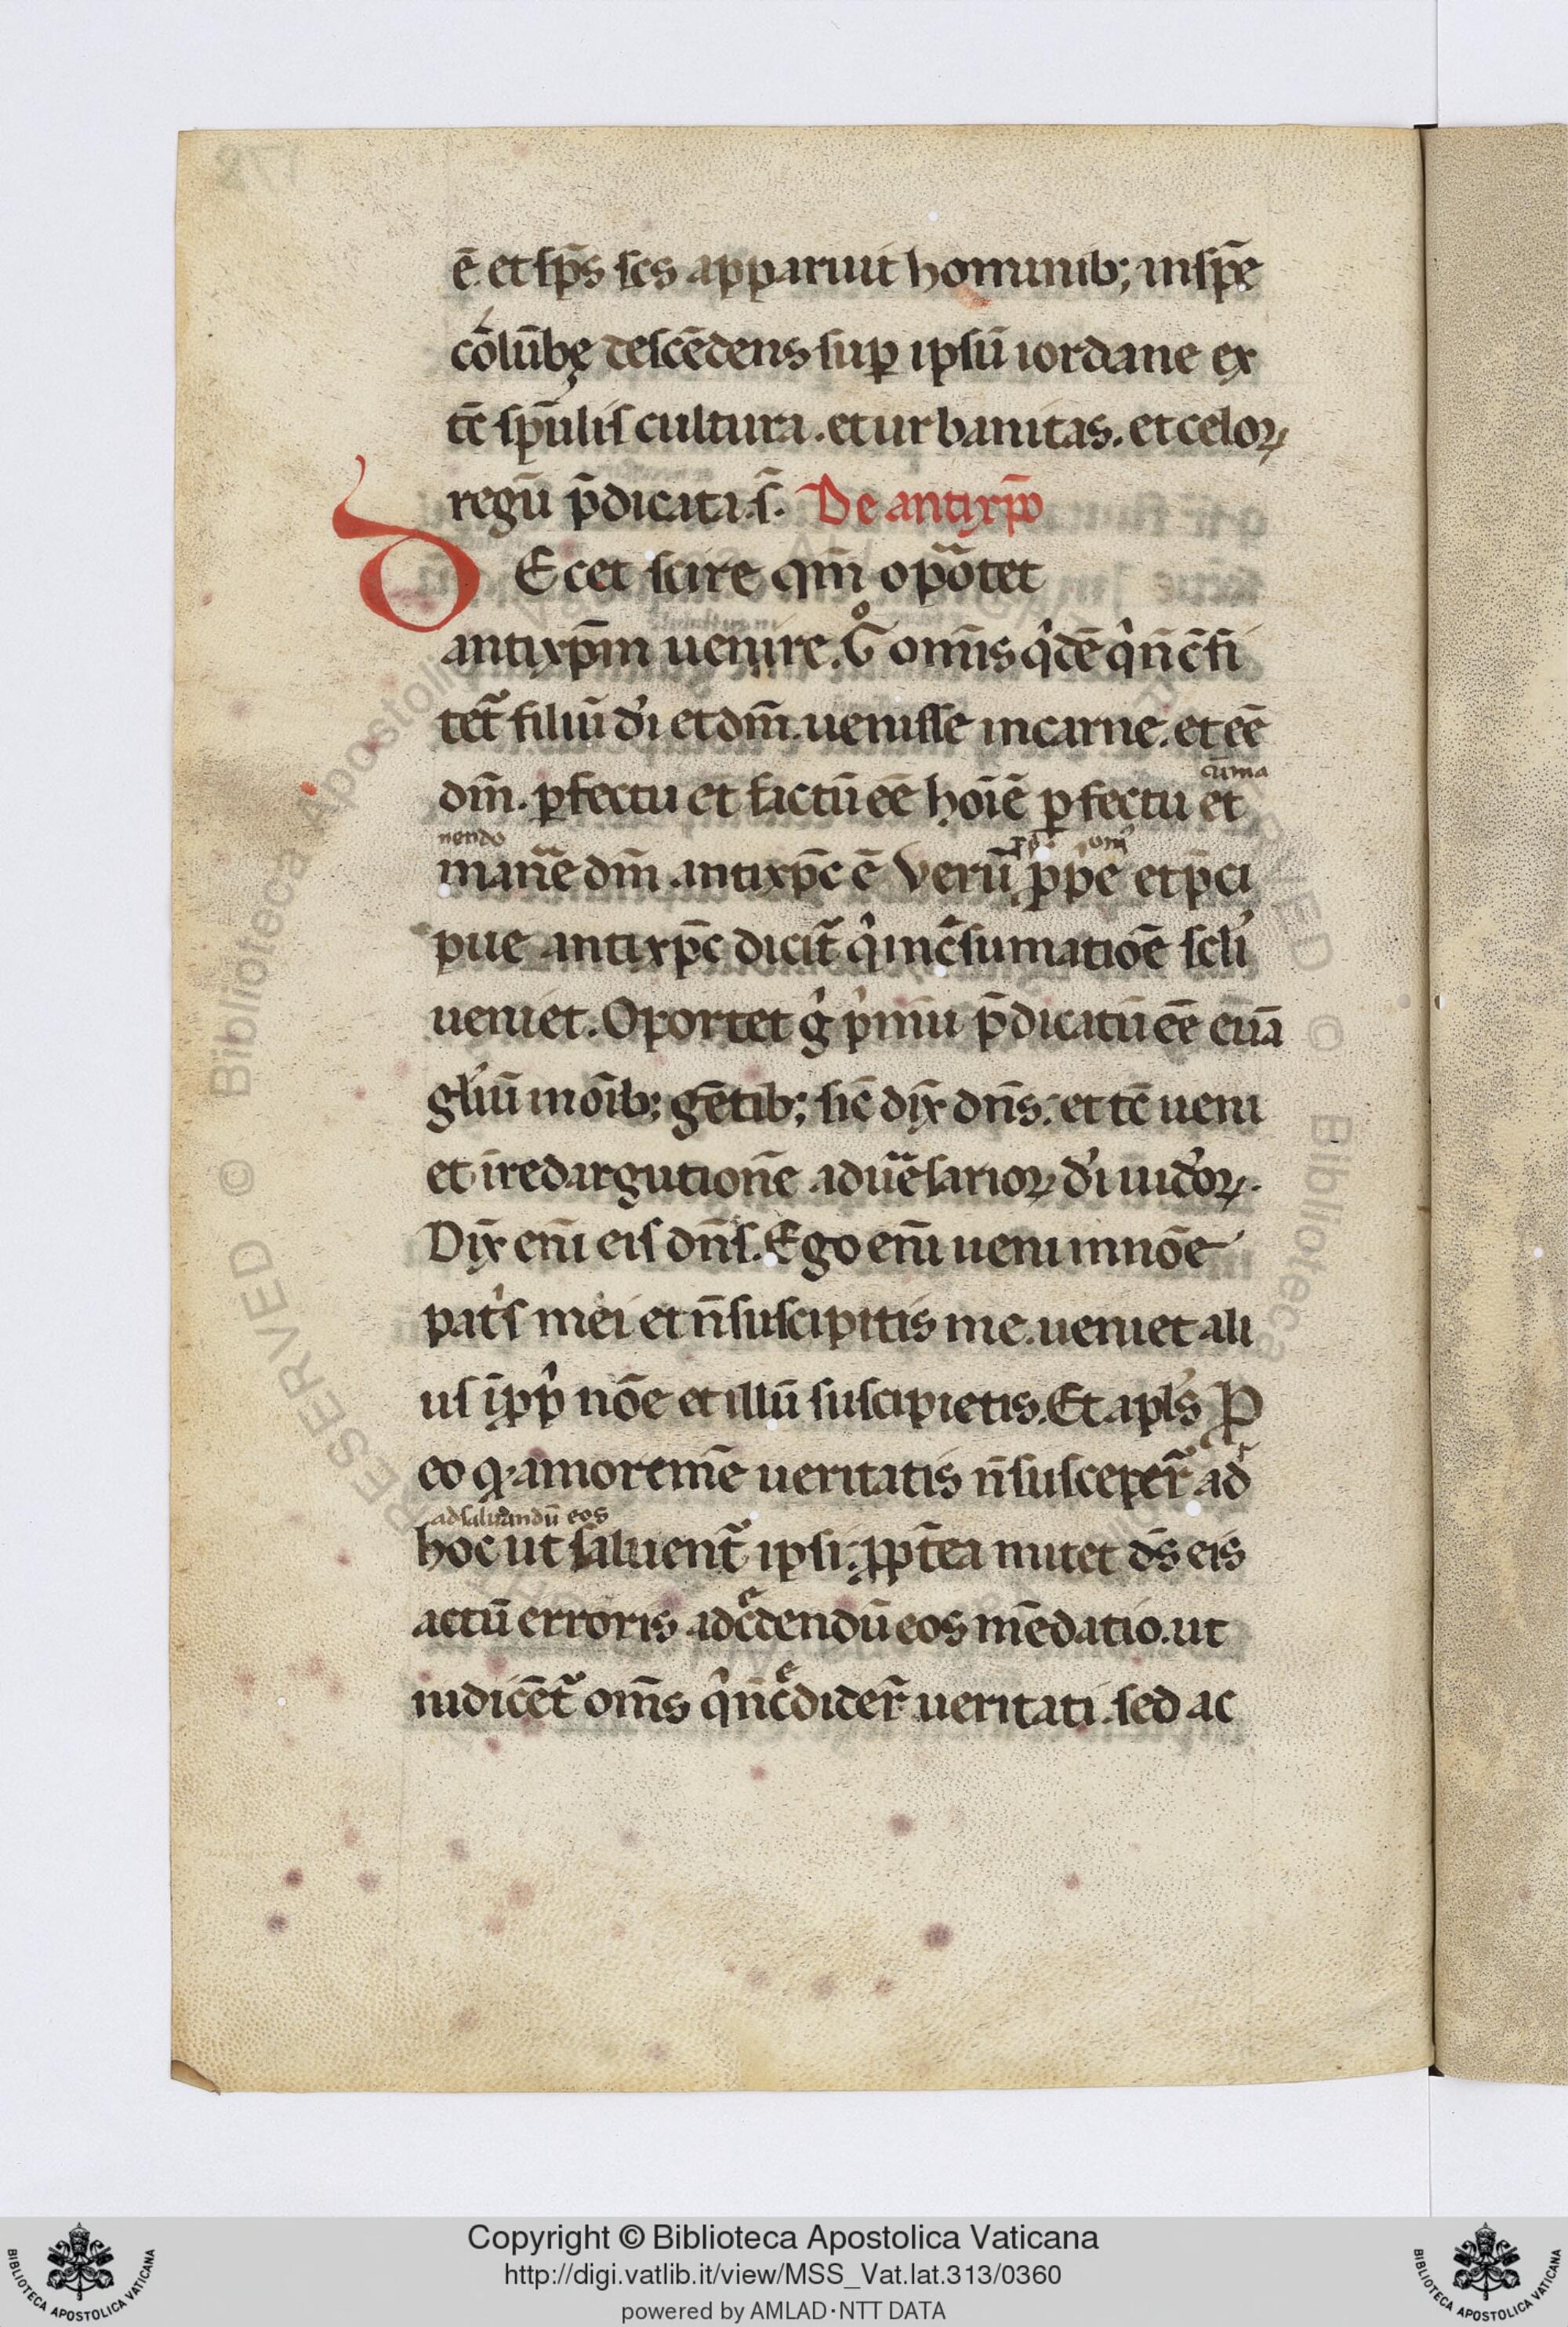 ē et sp̄s scs apparuit hominib; insp̄e
cōlūbę descēdens sup ipsū iordane ex
tc̄ sp̄ulis cultura. et urbanitas. et celoꝝ
regū p̄dicati s̄. De antixp̄o
DEcet scire qm̄ opātet
antixp̄m uenire. Gͦ om̄is qͥdē qͥ n̄ c̄fi
tet᷑ filiū dͥi et dm̄. uenisse in carne. et eē
dm̄. ꝑfectu et factū eē hoīē ꝑfectu et
cū ma
nendo
man̄e dm̄. antixp̄c ē Verū p̄pe et p̄ci
pue antixp̄c dicit᷑ qͥ in c̄sumatiōe scłi
ueniet. Oportet gͥ pͥmū p̄dicatū eē euā
głiū in oīb; gētib; sic̄ dix̄ dn̄s. et tc̄ ueni
et īredargution̄e aduēsarioꝝ dͥi iudͥoꝝ.
Dix̄ eni̅ eis dn̄s. Ego eni̅ ueni in nōe
patͥs mei et n̄ suscipitis me. ueniet ali
us īpͥpͥ nōe et illū suscipietis. Et apłs P
eo q amorem̄e ueritatis n̄ susceper᷑ ad
ad saluandū eos
hoc ut saluent᷑ ipsi. ꝓpt̄ea mitet ds̄ eis
actū erroris ad c̄dendū eos mēdatio. ut
iudicēt᷑ om̄s qͥ n̄ c̄dider᷑ ueritati. sed ac
Copyright © Biblioteca Apostolica Vaticana
http://digi.vatlib.it/view/MSS_Vat.lat.313/0360
powered by AMLAD·NTT DATA
BIBLIOTECA APOSTOLICA VATICANA
BIBLIOTECA APOSTOLICA VATICANA